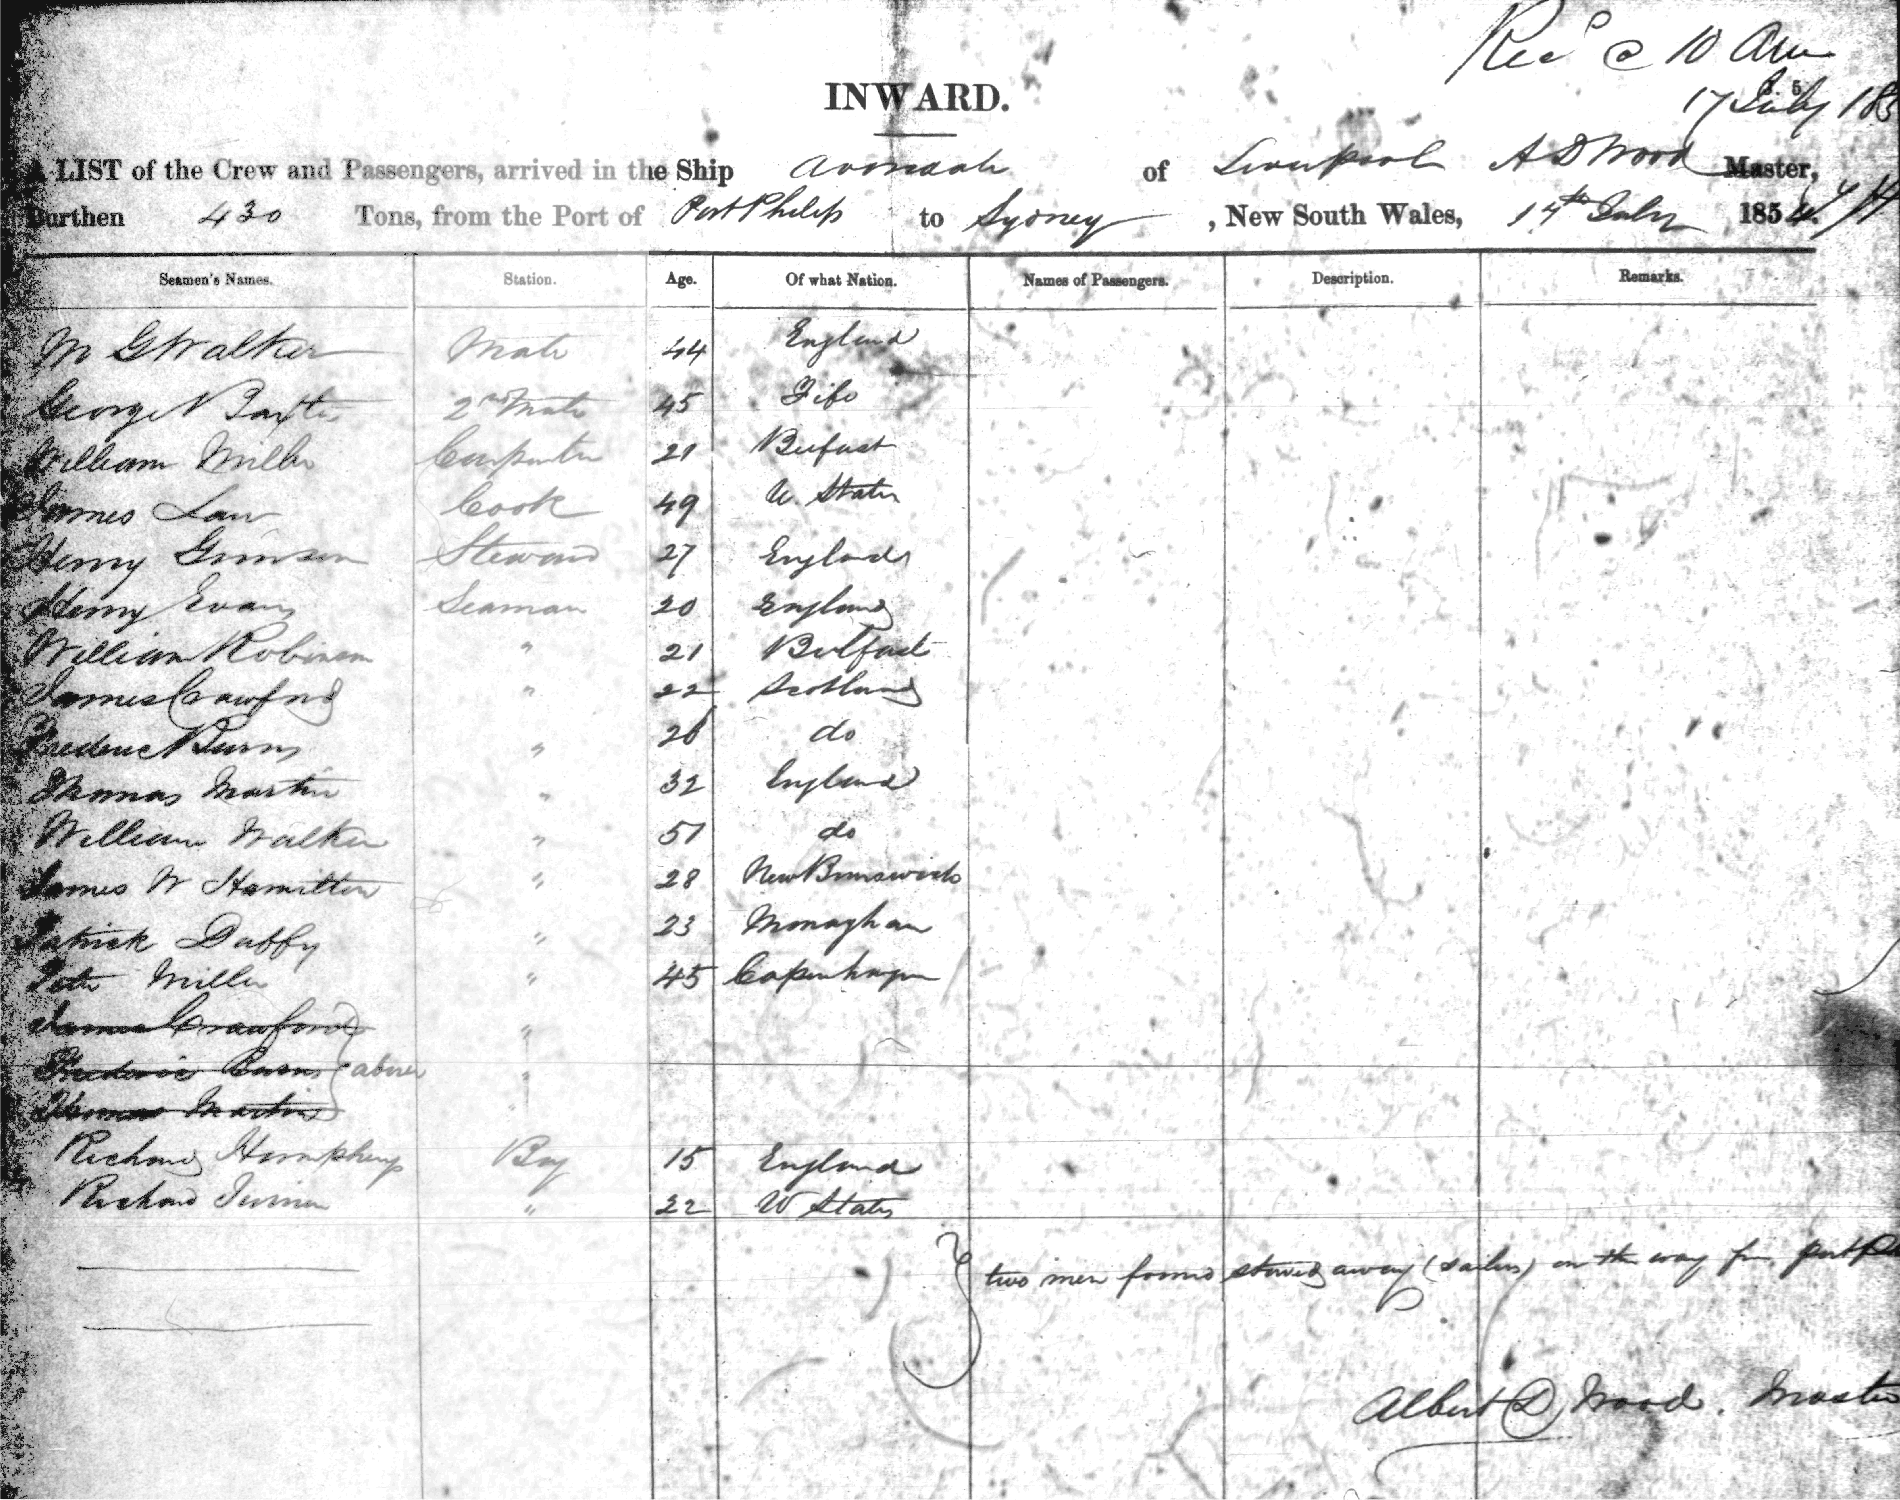 Recd @ 10 Am
17 July 185
INWARD.
A LIST of the Crew and Passengers, arrived in the Ship of Liverpool A D Wood Master,
Burthen 430 Tons, from the Port of Port Philip to Sydney, New South Wales, 17th July 1854
Seamen's Names. Station. Age. Of what Nation. Names of Passengers. Description. Remarks.
M G Walker Mate 44 England
George N 2nd Mate 45 Fife
William Miller Carpenter 21 Belfast
James Law Cook 49 U. States
Henry Grimson Steward 27 England
Henry Evans Seaman 20 England
William Robinson " 21 Belfast
James Crawford " 22 Scotland
Frederic Burns " 26 do
Thomas Martin " 32 England
William Walker " 51 do
James W Hamilton " 28 New Brunswick
Patrick Duffy " 23 Monaghan
Peter Miller " 45 Copenhagen
James Crawford "
Frederic Burns above "
Thomas Martin "
Richard Humphreys Boy 15 England
Richard Turner " 22 U States
two men found stowed away (sailors) on the way from port
Albert D Wood. Master